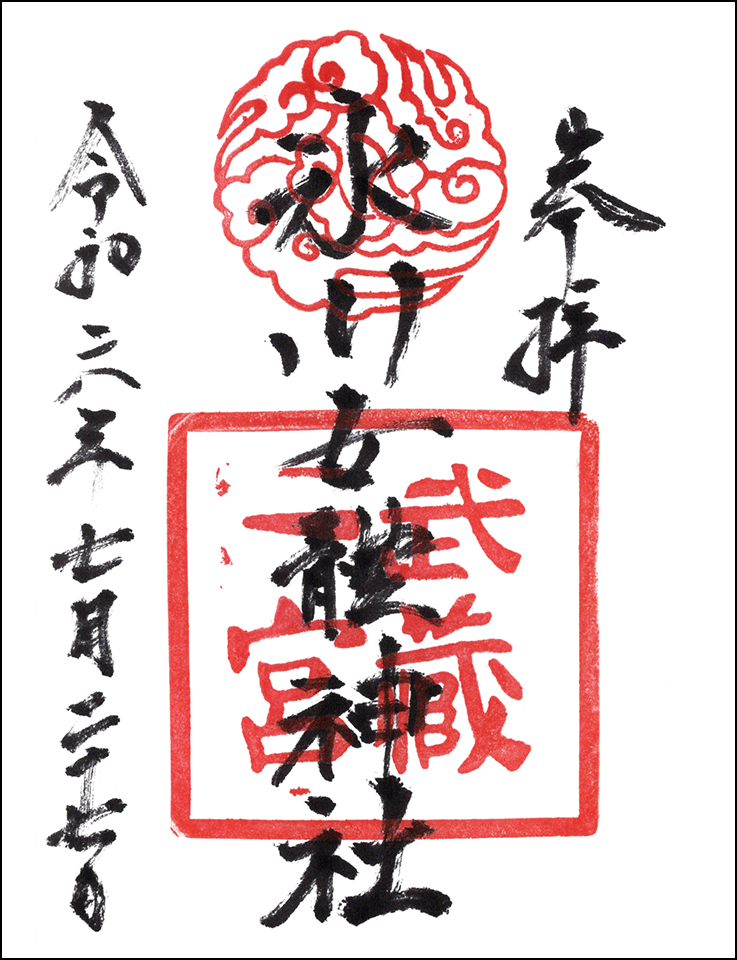 奉拝
氷川女體神社
武藏
一宮
令和六年七月二十七日